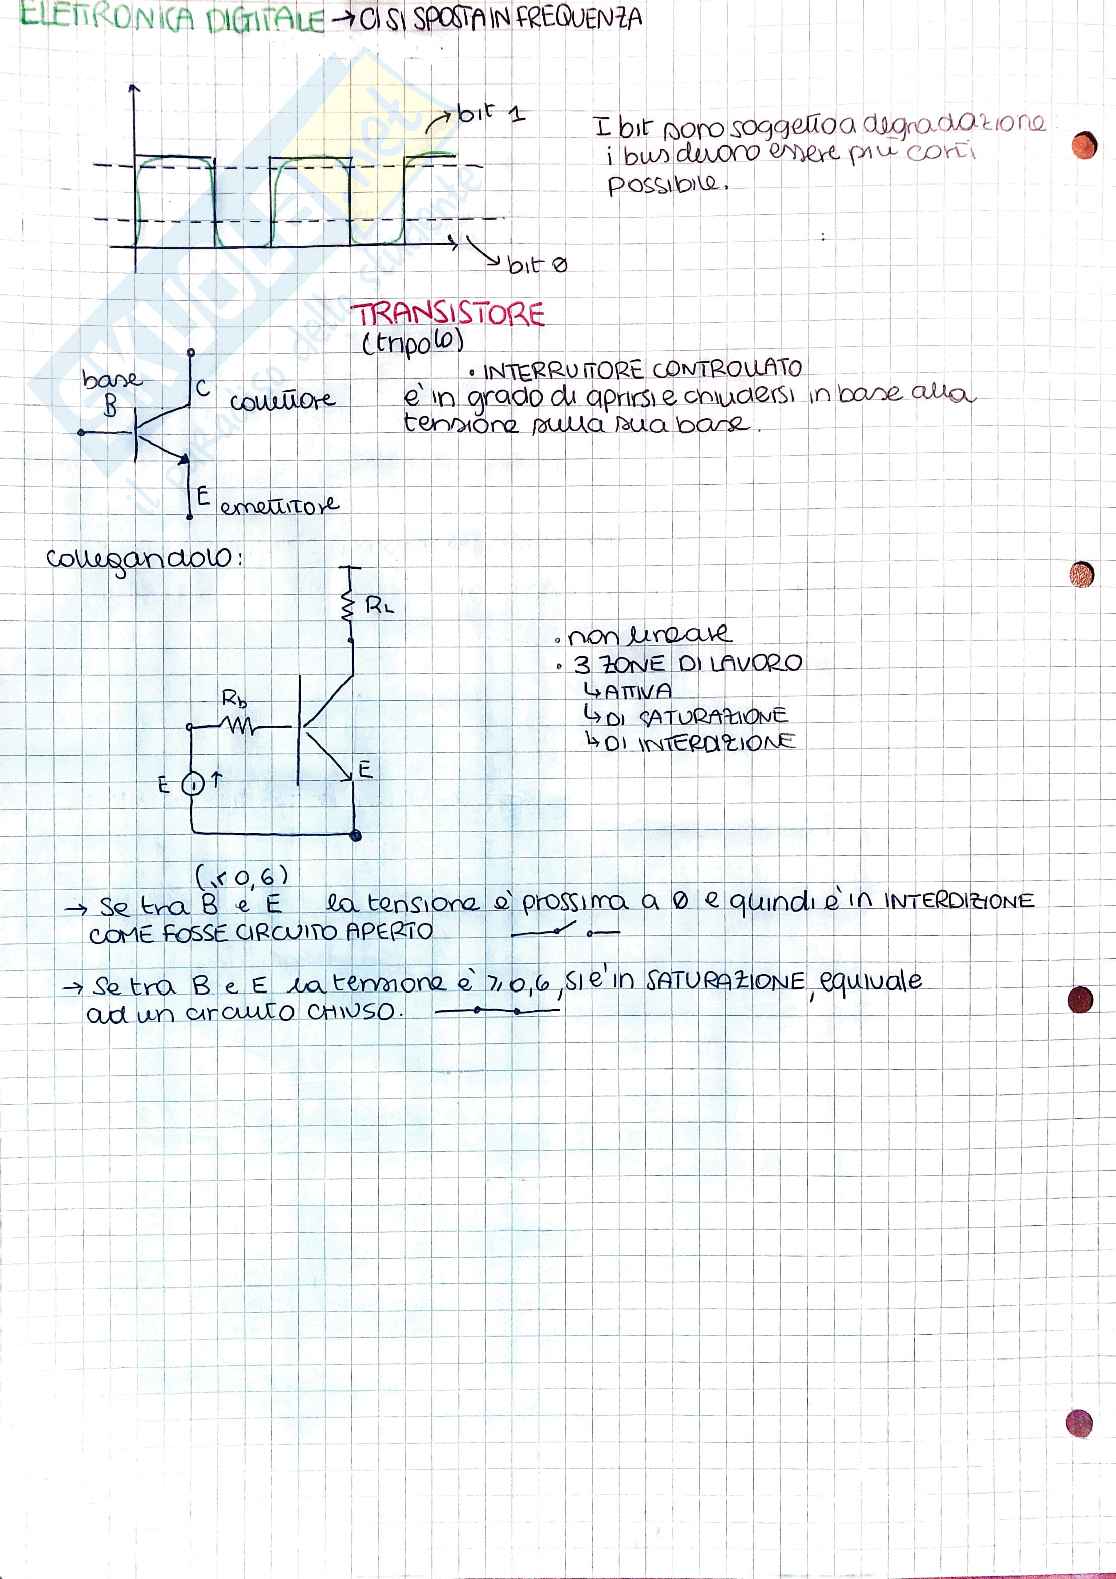 ELETTRONICA DIGITALE → CI SI SPOSTA IN FREQUENZA
bit 1
I bit sono soggetti a degradazione
i bus devono essere più corti
possibile.
bit 0
SKUOLA.net
il paradiso dello studente
TRANSISTORE
(tripolo)
• INTERRUTTORE CONTROLLATO
è in grado di aprirsi e chiudersi in base alla
tensione sulla sua base.
base
B
C collettore
E emettitore
collegandolo:
RL
Rb
E
E
• non lineare
• 3 ZONE DI LAVORO
↳ ATTIVA
↳ DI SATURAZIONE
↳ DI INTERDIZIONE
(< 0,6)
→ Se tra B e E la tensione è prossima a 0 e quindi è in INTERDIZIONE
COME FOSSE CIRCUITO APERTO
→ Se tra B e E la tensione è ≥ 0,6, si è in SATURAZIONE, equivale
ad un circuito CHIUSO.